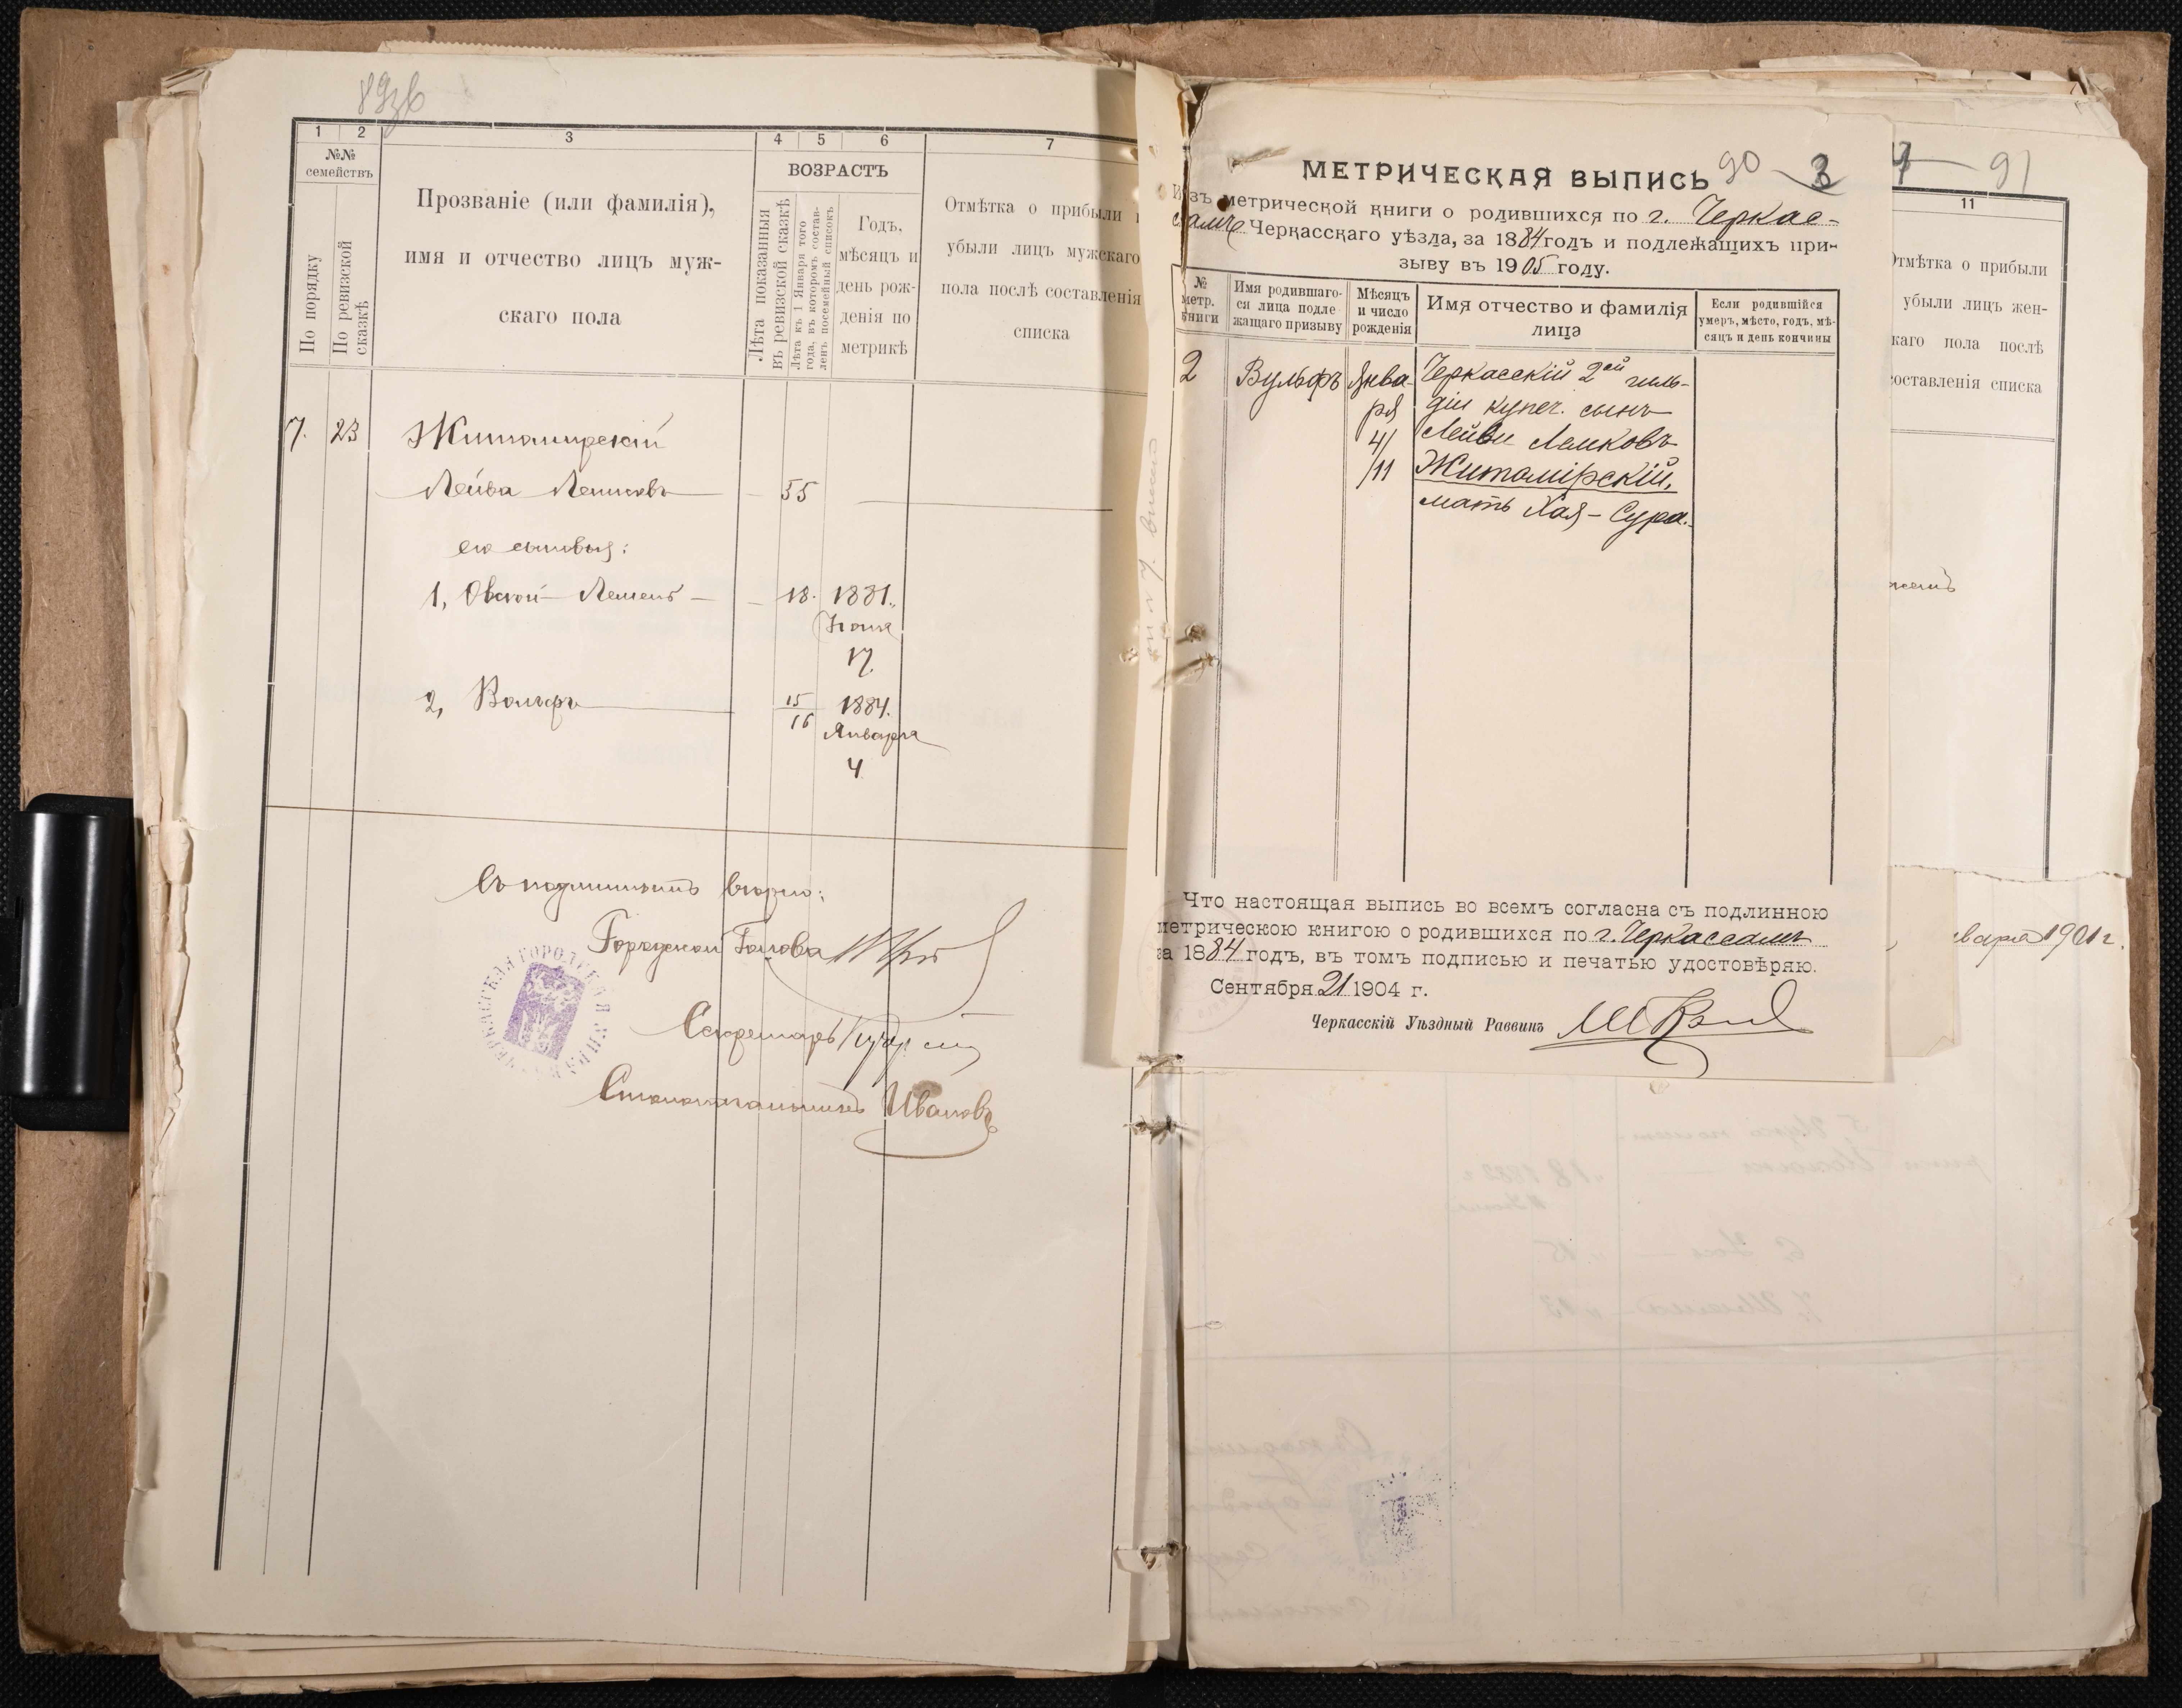 89об
1 2 3 4 5 6 7
№№ семействъ
По порядку
По ревизской сказкѣ
Прозваніе (или фамилія),
имя и отчество лицъ муж-
скаго пола
ВОЗРАСТЪ
Лѣта показанныя въ ревизской сказкѣ
Лѣта къ 1 Января того года, въ которомъ составленъ посемейный списокъ
Годъ,
мѣсяцъ и
день рож-
денія по
метрикѣ
Отмѣтка о прибыли и
убыли лицъ мужскаго
пола послѣ составленія
списка
7. 23 Житомирскій
Лейба Лемковъ 55
его сыновья:
1, Овсей Лемель 18. 1881.
Іюня
17.
2, Вольфъ 15/16 1884.
Января
4
Съ подлиннымъ вѣрно:
Городской Голова
Секретарь
Столоначальникъ Ивановъ
МЕТРИЧЕСКАЯ ВЫПИСЬ 90 3
Изъ метрической книги о родившихся по г. Черкас-
самъ Черкасскаго уѣзда, за 1884 годъ и подлежащихъ при-
зыву въ 1905 году.
№ метр. книги
Имя родившаго-
ся лица подле-
жащаго призыву
Мѣсяцъ
и число
рожденія
Имя отчество и фамилія
лицэ
Если родившійся
умеръ, мѣсто, годъ, мѣ-
сяцъ и день кончины
2 Вульфъ Янва- Черкасскій 2ой гиль-
ря діи купеч. сынъ
4/ Лейви Лемковъ
/11 Житомірскій,
мать Хая-Сура.
Что настоящая выпись во всемъ согласна съ подлинною
метрическою книгою о родившихся по г. Черкассамъ
за 1884 годъ, въ томъ подписью и печатью удостовѣряю.
Сентября 21 1904 г.
Черкасскій Уѣздный Раввинъ
91
11
Отмѣтка о прибыли
убыли лицъ жен-
скаго пола послѣ
составленія списка
варя 1901 г.